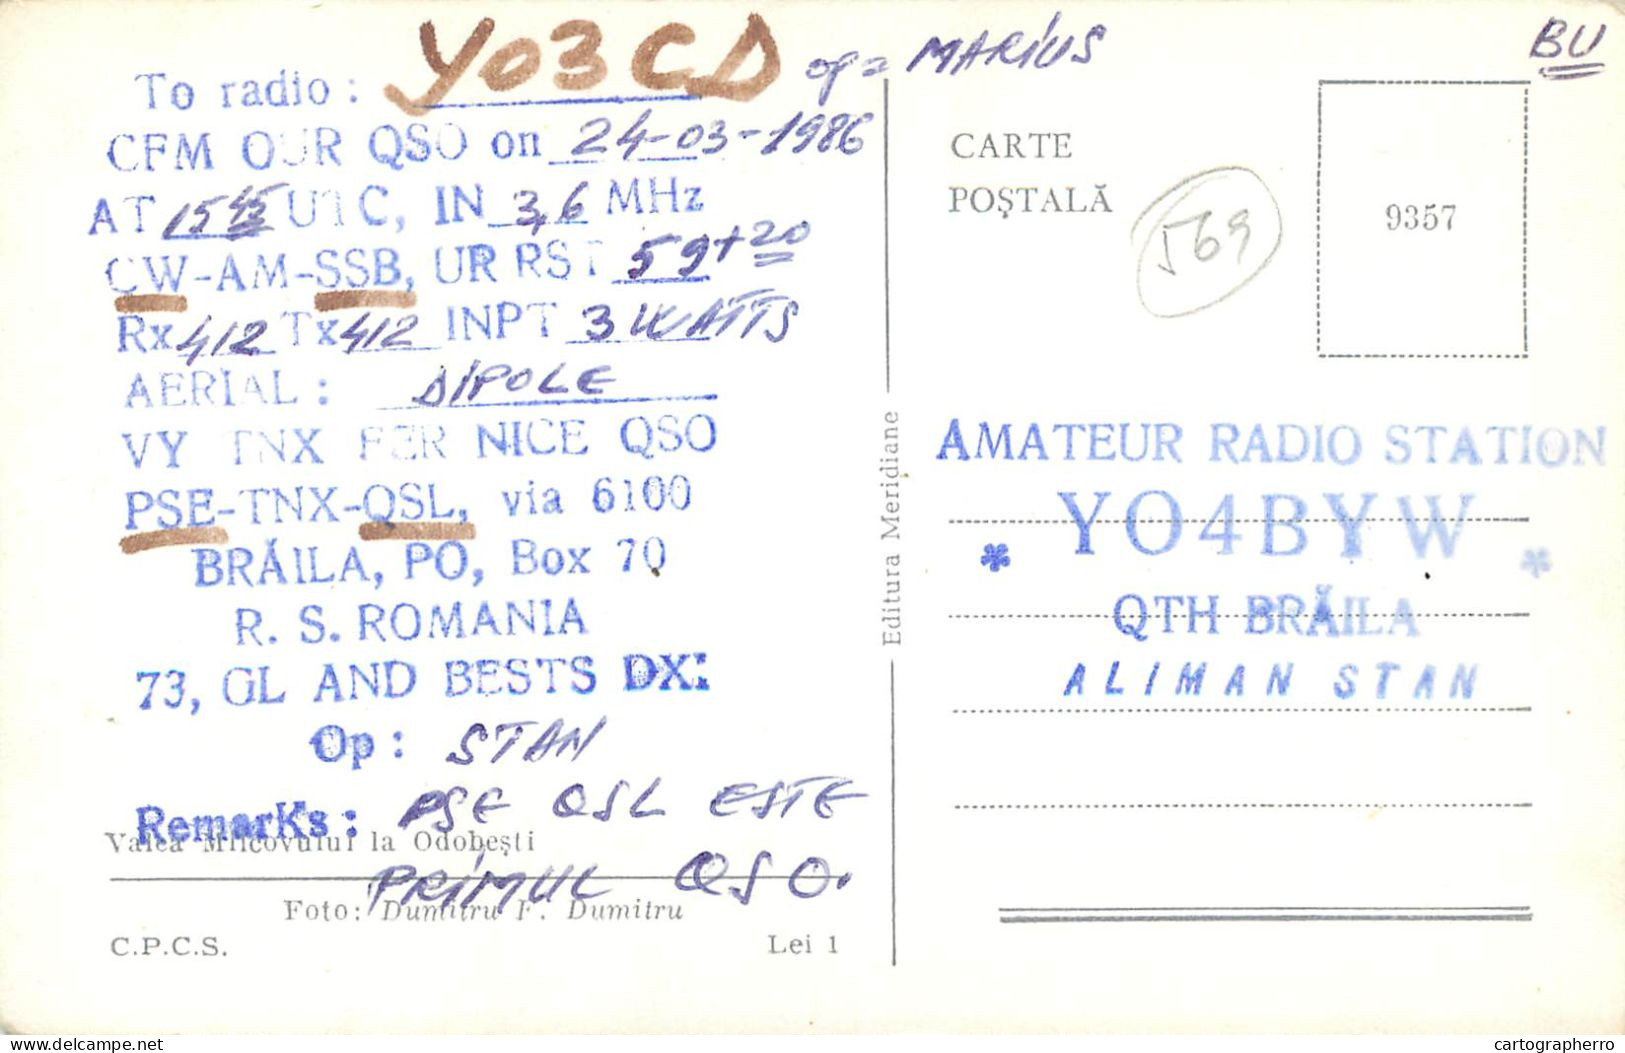 To radio: YO3CD op = MARIUS
CFM OUR QSO on 24-03-1986
AT 15 45 UTC, IN 3,6 MHz
CW-AM-SSB, UR RST 59+20
Rx 412 Tx 412 INPT 3 WATTS
AERIAL: DIPOLE
VY TNX FER NICE QSO
PSE-TNX-QSL, via 6100
BRĂILA, PO, Box 70
R. S. ROMANIA
73, GL AND BESTS DX!
Op: STAN
RemarKs: PSE QSL ESTE
Valea Milcovului la Odobești
PRIMUL QSO.
Foto: Dumitru F. Dumitru
C.P.C.S. Lei 1
Editura Meridiane
BU
CARTE
POŞTALĂ
569
9357
AMATEUR RADIO STATION
* YO4BYW *
QTH BRĂILA
ALIMAN STAN
cartographerro